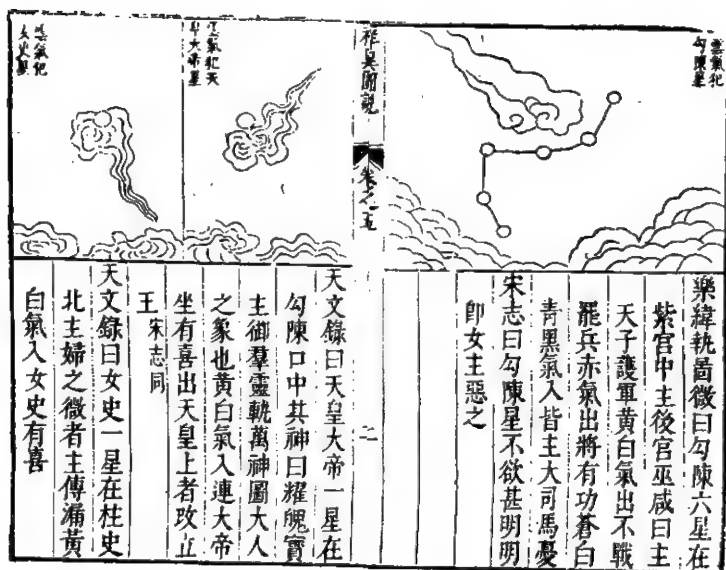 雲氣犯
勾陳星
樂緯執啚徵曰勾陳六星在
紫宮中主後宮巫咸曰主
天子護軍黃白氣出不戰
罷兵赤氣出將有功蒼白
青黑氣入皆主大司馬憂
宋志曰勾陳星不欲甚明明
即女主惡之
祥異圖說
卷之五
二
雲氣犯天
皇大帝星
天文錄曰天皇大帝一星在
勾陳口中其神曰耀魄寶
主御羣靈執萬神圖大人
之象也黃白氣入連大帝
坐有喜出天皇上者改立
王 宋志同
雲氣犯
女史星
天文錄曰女史一星在柱史
北主婦之微者主傳漏黃
白氣入女史有喜